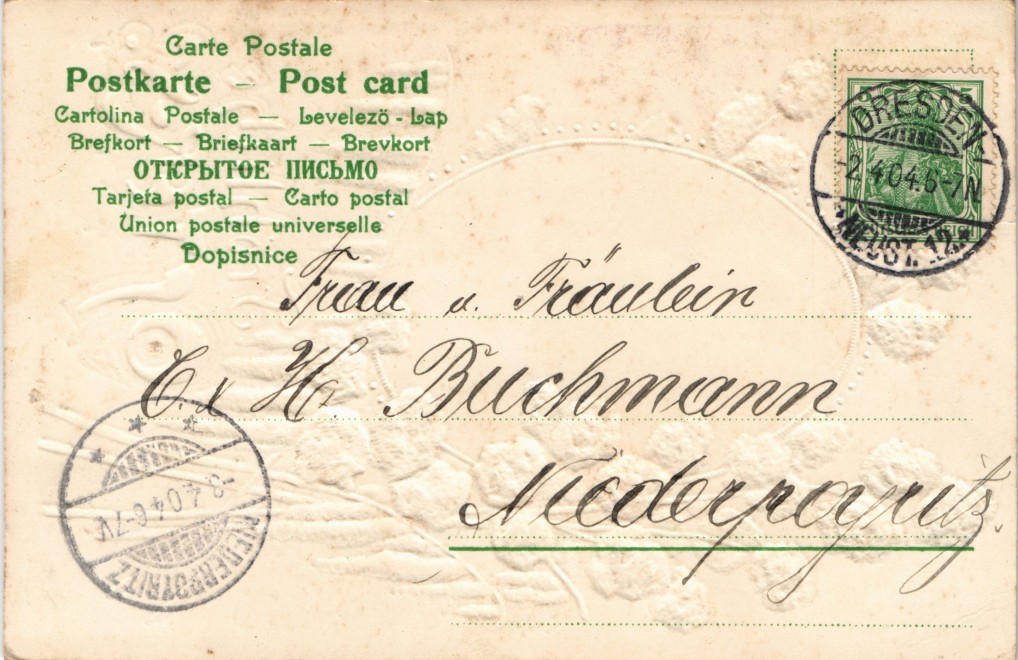 Carte Postale
Postkarte — Post card
Cartolina Postale — Levelező-Lap
Brefkort — Briefkaart — Brevkort
ОТКРЫТОЕ ПИСЬМО
Tarjeta postal — Carto postal
Union postale universelle
Dopisnice
5
DRESDEN
-2.4.04.6-7N
NEUST. 12.
Frau u. Fräulein
E. u H. Buchmann
Niederpoyritz.
-3.4.04.6-7V
NIEDERPOYRITZ